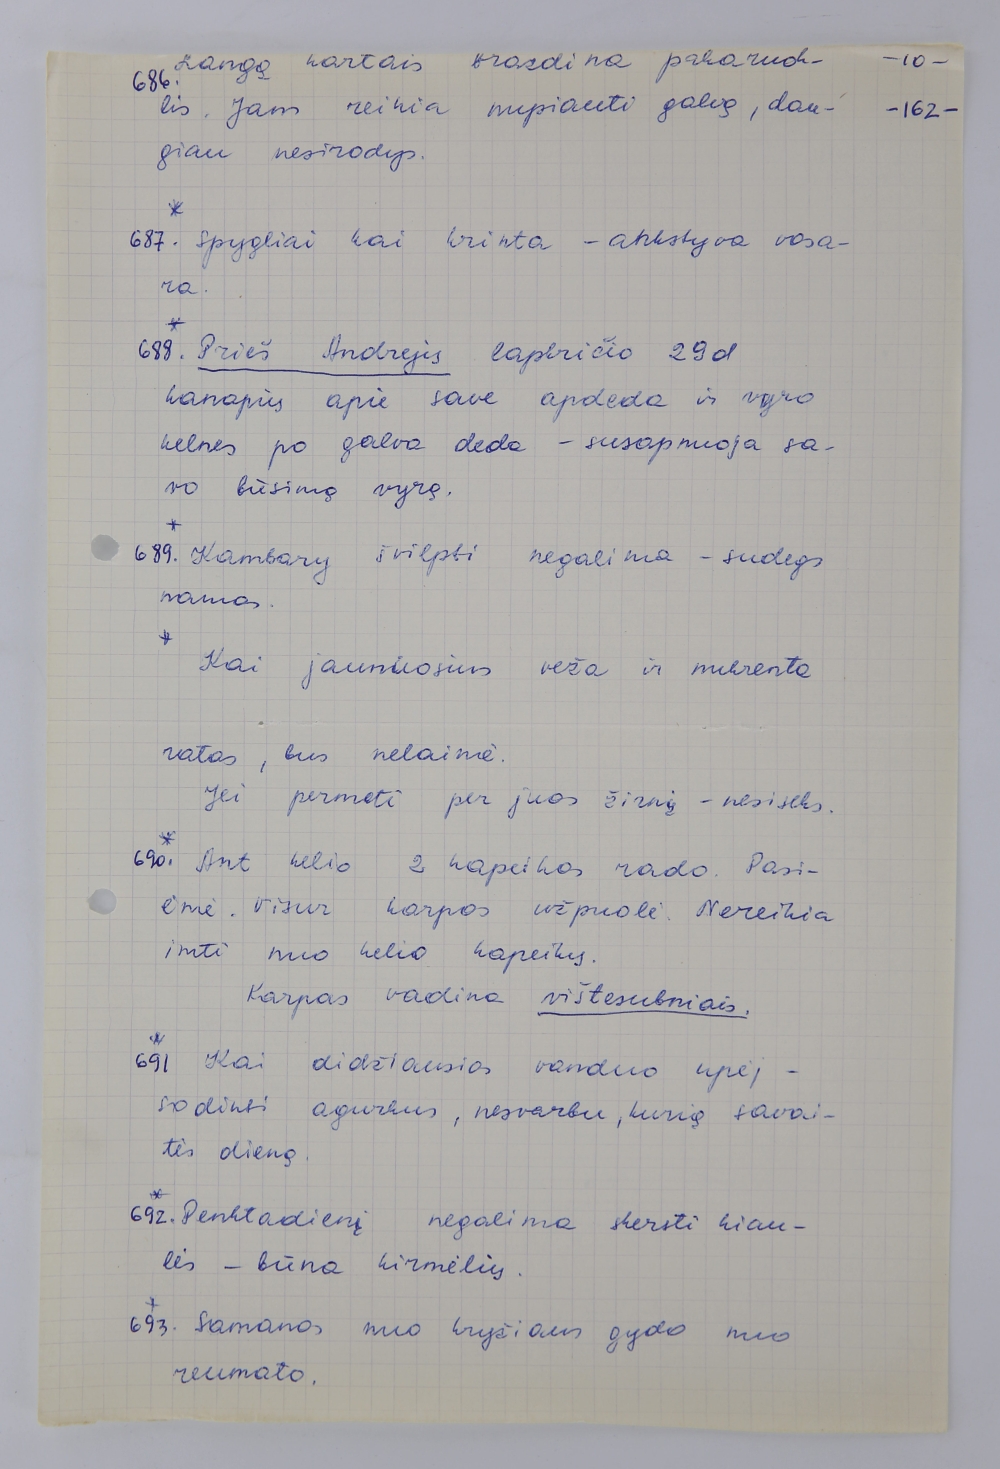 Langą kartais brazdina pakaruok- -10-
686. lis. Jam reikia nupiauti galvą, dau- -162-
giau nesirodys.
*
687. Spygliai kai krinta - ankstyva vasa-
ra.
*
688. Prieš Andrejų lapkričio 29d
kanapių apie save apdeda ir vyro
kelnes po galva deda - susapnuoja sa-
vo būsimą vyrą.
*
689. Kambary švilpti negalima - sudegs
namas.
*
Kai jaunuosius veža ir nukrenta
ratas, bus nelaimė.
Jei permeti per juos žirnį - nesiseks.
*
690. Ant kelio 2 kapeikas rado. Pasi-
ėmė. Visur karpos užpuolė. Nereikia
imti nuo kelio kapeikų.
Karpas vadina vištesubniais.
*
691 Kai didžiausias vanduo upėj -
sodinti agurkus, nesvarbu, kurią savai-
tės dieną.
*
692. Penktadienį negalima skersti kiau-
lės - būna kirmėlių.
*
693. Samanos nuo kryžiaus gydo nuo
reumato.